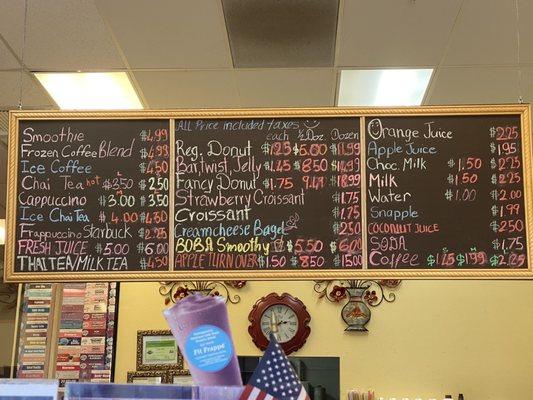 Smoothie $4.99
Frozen Coffee Blend $4.99
Ice Coffee $4.50
Chai Tea hot $3.50 $2.50
Cappucino $3.00 $3.50
Ice Chai Tea $4.00 $4.50
Frappuccino Starbuck $2.75
FRESH JUICE $5.00 $6.00
THAI TEA/MILK TEA $4.50
All Price included taxes
each 1/2 Doz Dozen
Reg. Donut $1.25 $5.00
Bar, twist, Jelly $1.45 $8.50
Fancy Donut $1.75
Strawberry Croissant $1.75
Croissant $1.75
Creamcheese Bagel $2.75
BOBA Smoothy $5.50 $6.00
APPLE TURNOVER $1.50 $8.50 $15.00
Orange Juice $2.25
Apple Juice $1.95
Choc. Milk $1.50 $2.75
Milk $1.50 $2.25
Water $1.00 $2.00
Snapple $1.99
COCONUT JUICE $2.50
SODA $1.75
Coffee $1.75 $1.99 $2.25
Fit Frappé